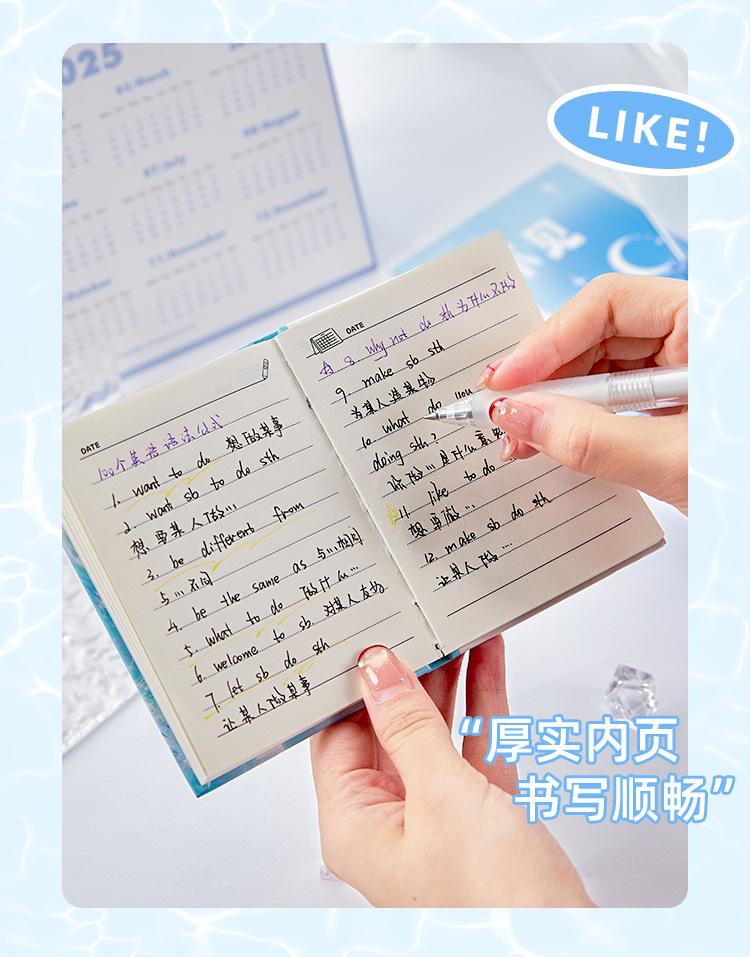 2025
03.March
07.July
08.August
11.November
12.December
LIKE!
DATE
100个英语语法公式
1. want to do 想做某事
2. want sb to do sth
想要某人做...
3. be different from
与...不同
4. be the same as 与...相同
5. what to do 做什么...
6. welcome to sb. 对某人友好
7. let sb do sth
让某人做某事
DATE
8. why not do sth 为什么不做
9. make sb sth
为某人造某物
10. what do you
doing sth?
你做...是什么意
11. like to do ...
想要做...
12. make sb do sth
让某人做...
“厚实内页
书写顺畅”